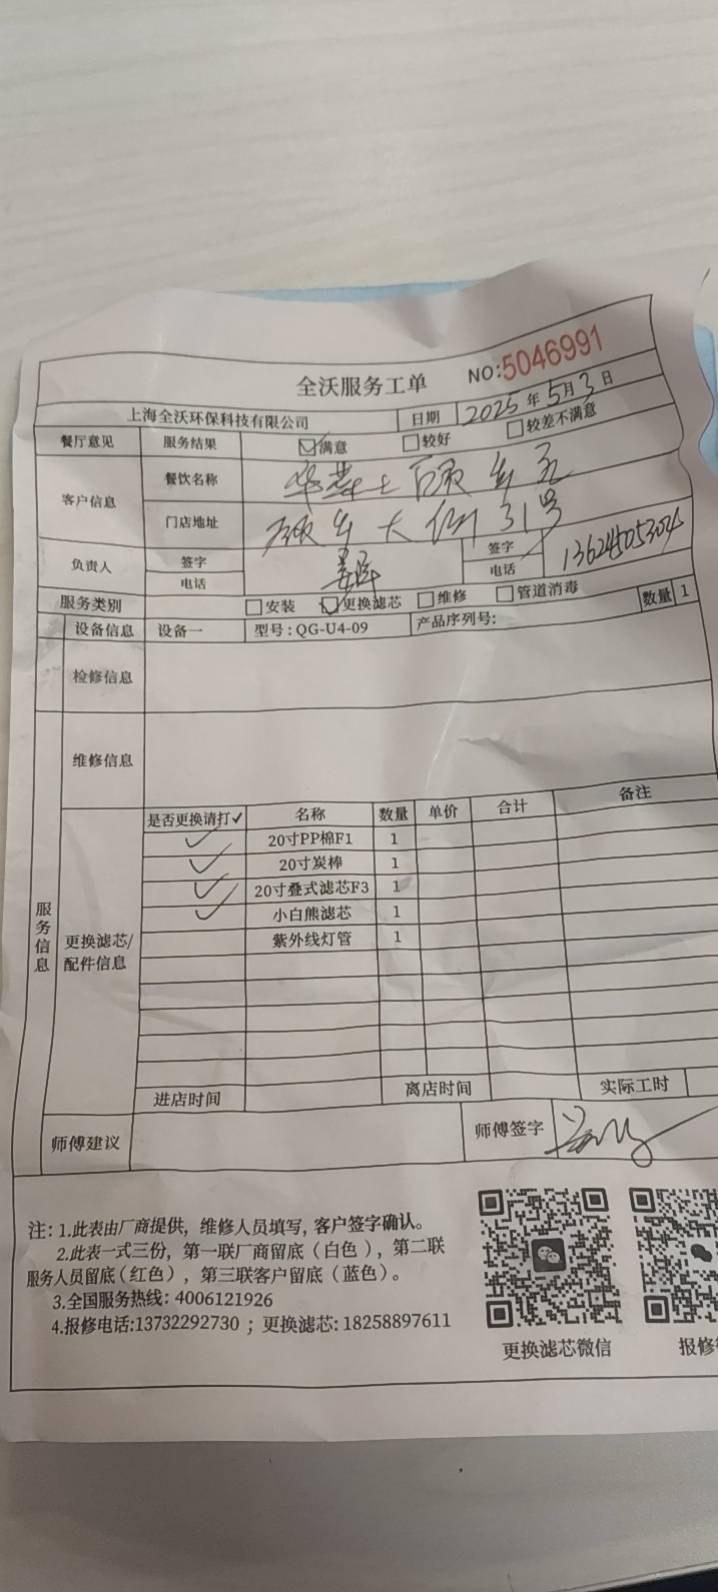 全沃服务工单 NO:5046991
上海全沃环保科技有限公司 日期 2025年5月3日
餐厅意见 服务结果 ☑满意 □较好 □较差不满意
客户信息 餐饮名称 华莱士
门店地址 31号
负责人 签字 签字
电话 电话 13624505304
服务类别 □安装 ☑更换滤芯 □维修 □管道消毒
设备信息 设备一 型号:QG-U4-09 产品序列号: 数量 1
检修信息
维修信息
服务信息
更换滤芯/配件信息
是否更换请打✓ 名称 数量 单价 合计 备注
✓ 20寸PP棉F1 1
✓ 20寸炭棒 1
✓ 20寸叠式滤芯F3 1
✓ 小白熊滤芯 1
紫外线灯管 1
进店时间 离店时间 实际工时
师傅建议 师傅签字
注: 1.此表由厂商提供，维修人员填写,客户签字确认。
2.此表一式三份，第一联厂商留底（白色），第二联
服务人员留底（红色），第三联客户留底（蓝色）。
3.全国服务热线: 4006121926
4.报修电话:13732292730 ；更换滤芯: 18258897611
更换滤芯微信 报修